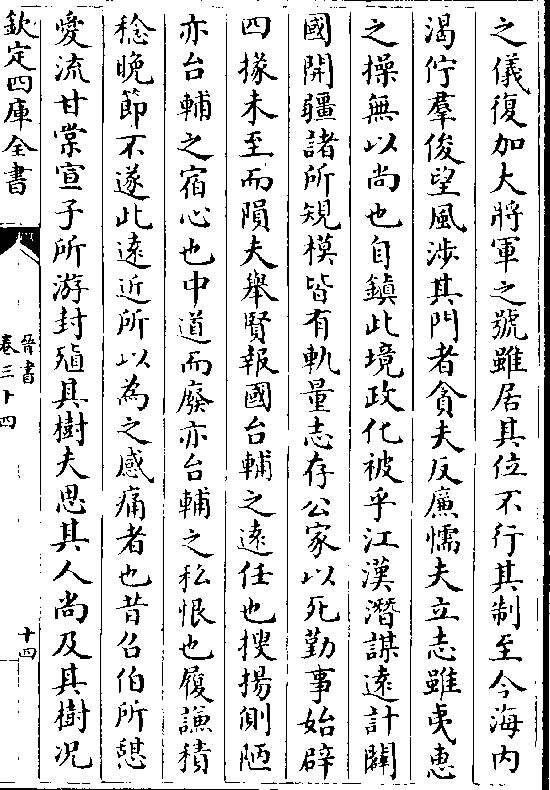 之儀復加大將軍之號雖居其位不行其制至今海内
渴佇羣俊望風涉其門者貪夫反廉懦夫立志雖夷惠
之操無以尚也自鎮此境政化被乎江漢潛謀遠計闢
國開疆諸所規模皆有軌量志存公家以死勤事始辟
四掾未至而隕夫舉賢報國台輔之遠任也搜揚側陋
亦台輔之宿心也中道而廢亦台輔之私恨也履謙積
稔晚節不遂此遠近所以為之感痛者也昔召伯所憩
愛流甘棠宣子所游封殖其樹夫思其人尚及其樹况
欽定四庫全書
晉書
卷三十四
十四